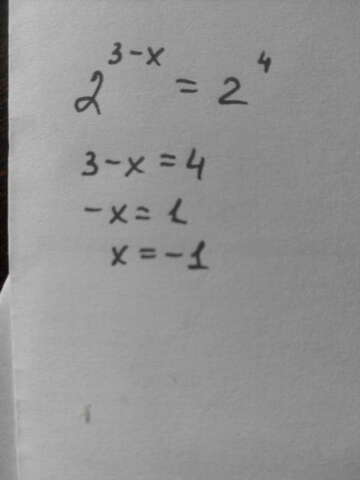 2^{3-x} = 2^4
3-x=4
-x=1
x=-1